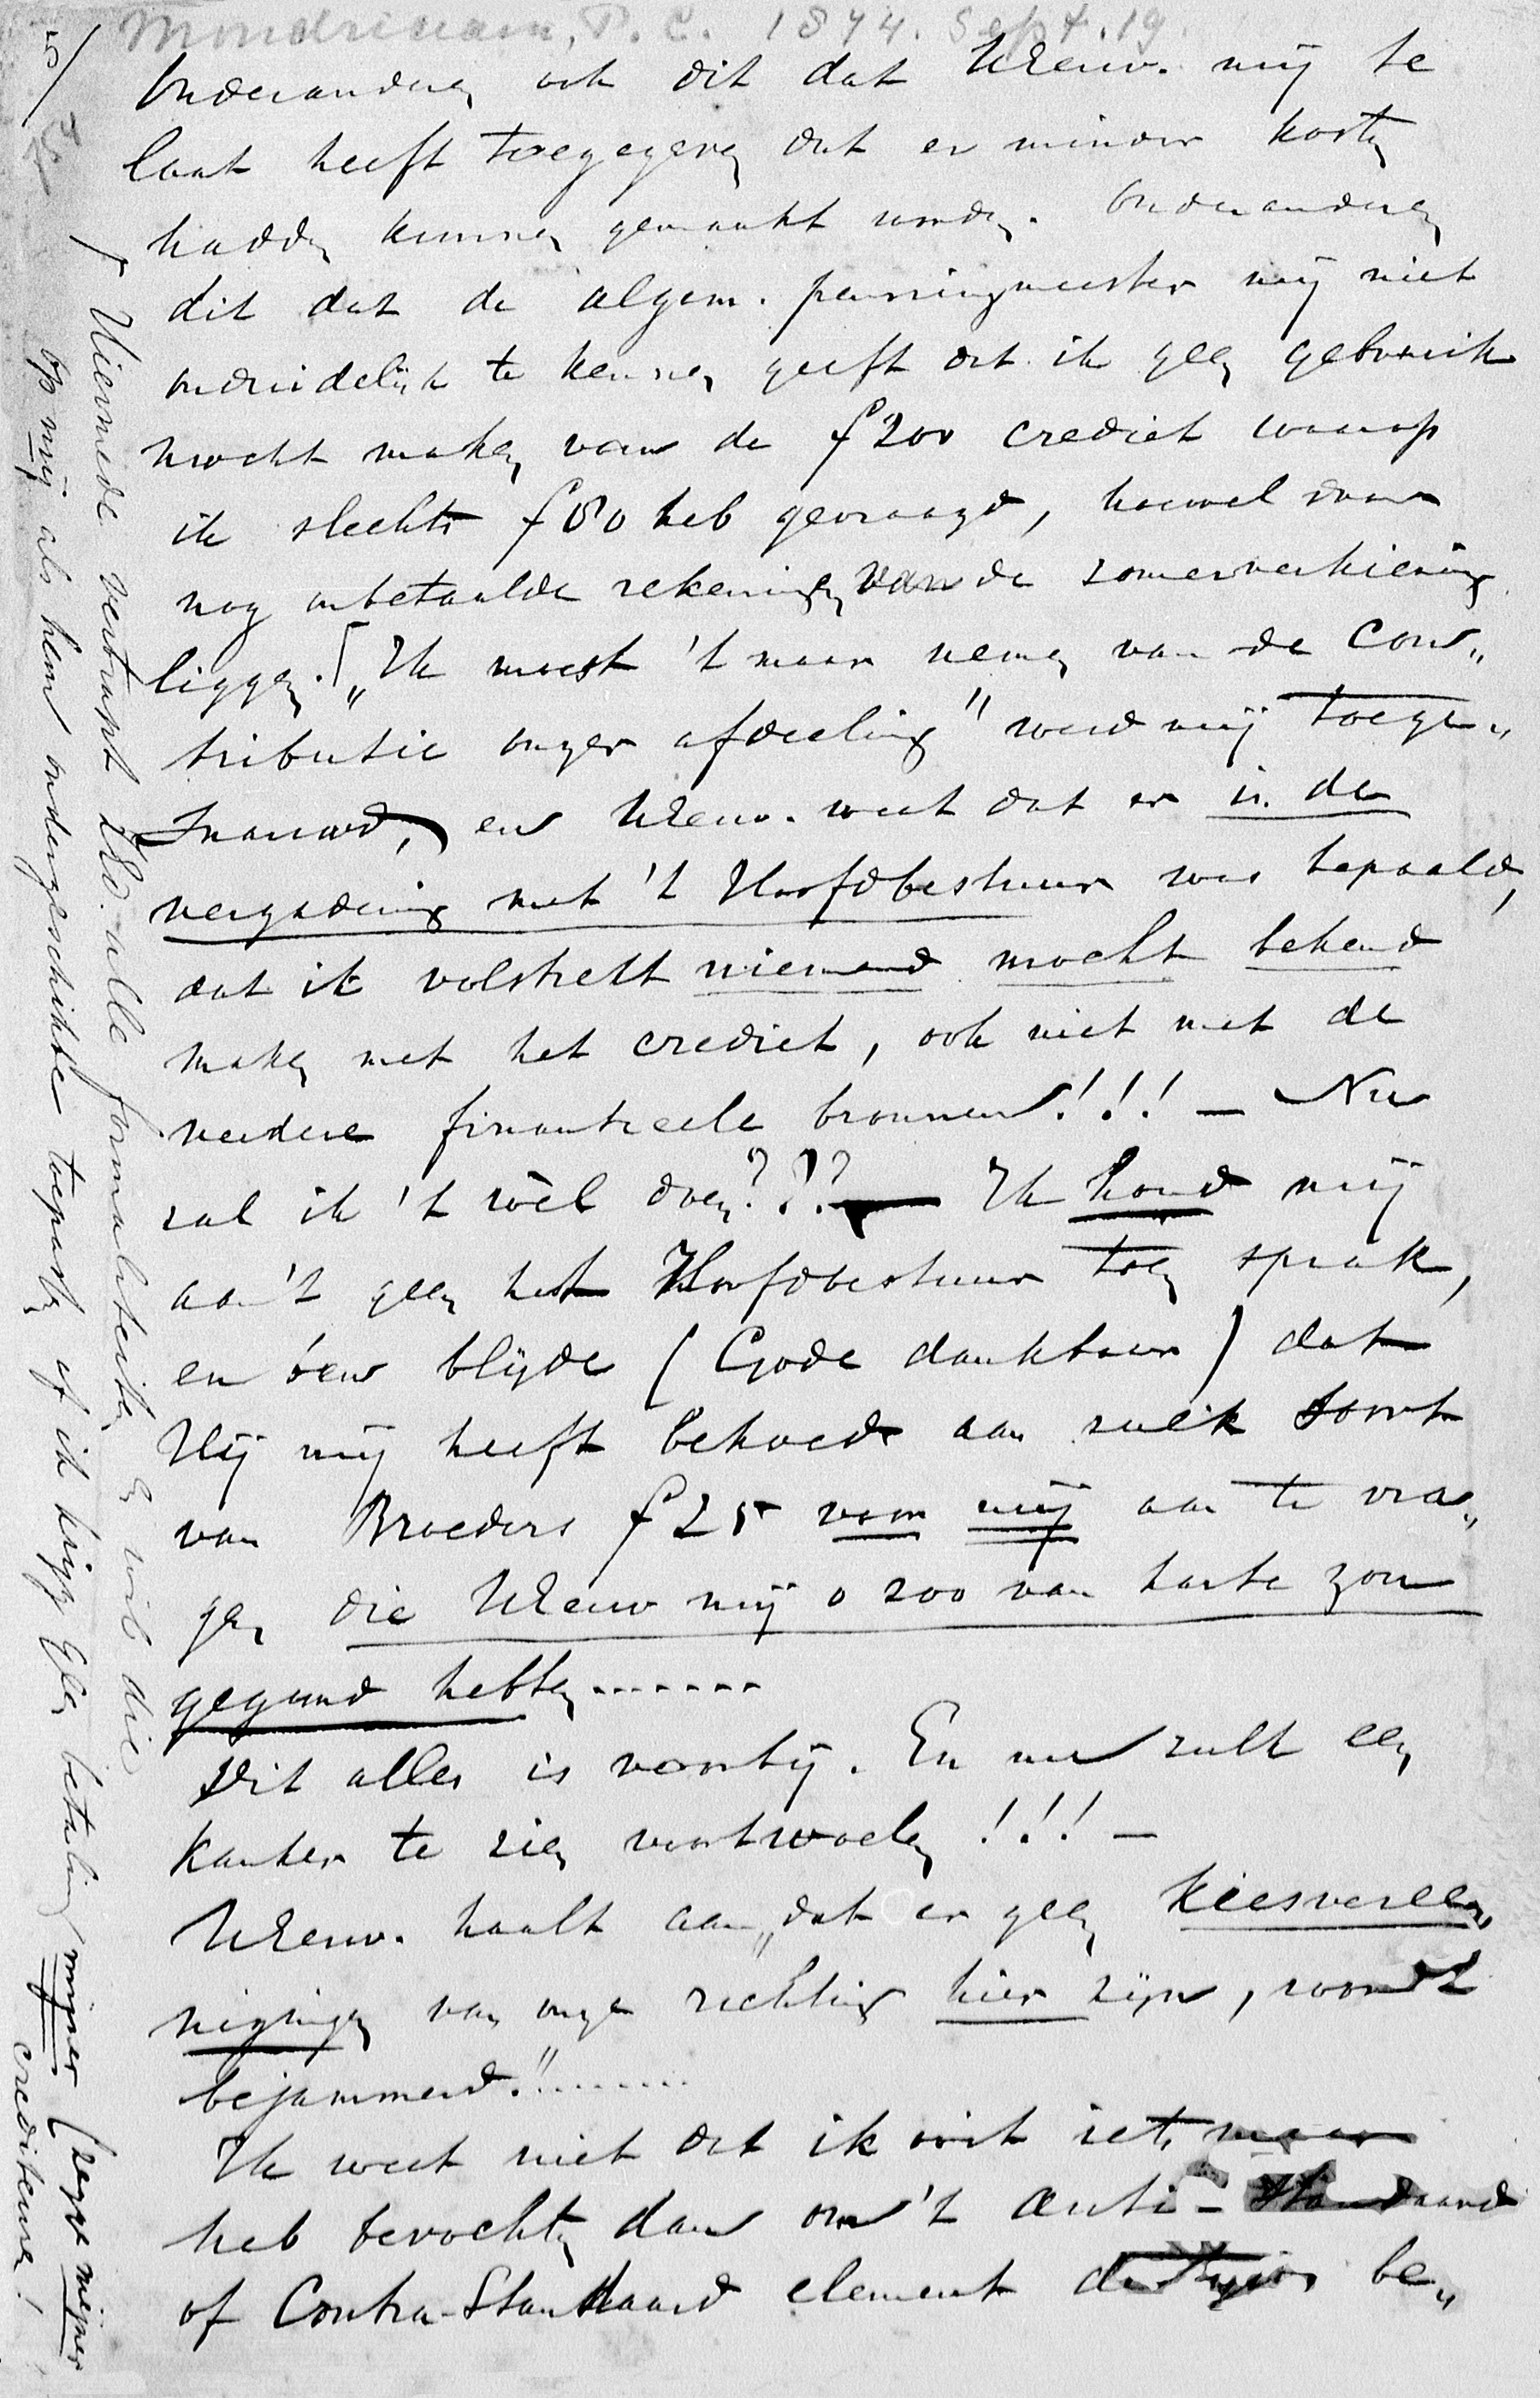 Mondriaan, P. C. 1874. Sept. 19.
5/
Onderanderen ook dit dat UEerw. mij te
laat heeft toegegeven dat er minder kosten
hadden kunnen gemaakt worden. Onderanderen
dit dat de algem. penningmeester mij niet
onduidelijk te kennen geeft dat ik geen gebruik
mocht maken van de f 200 crediet waarop
ik slechts f 80 heb gevraagd, hoewel daar
nog onbetaalde rekeningen van de zomerverkiezing
liggen. „Ik moest 't maar nemen van de Con„
tributie onzer afdeeling" werd mij toege„
snauwd, en UEerw. weet dat er in de
vergadering met 't Hoofdbestuur was bepaald,
dat ik volstrekt niemand mocht bekend
maken met het crediet, ook niet met de
verdere financieele bronnen!!! — Nu
zal ik 't wèl doen??? — Ik houd mij
aan 't geen het Hoofdbestuur toen sprak,
en ben blijde (Gode dankbaar) dat
Hij mij heeft behoed aan zulk soort
van Broeders f 25 voor mij aan te vra„
gen die UEerw mij o zoo van harte zou
gegund hebben.......
Dit alles is voorbij. En nu zult een
Kanker te zien voortwoelen!!! —
UEerw. haalt aan „dat er geen Kiesveree„
nigingen van onze richting hier zijn, wordt
bejammerd."........
Ik weet niet dat ik ooit iets meer
heb bevochten dan om 't Anti-Standaard
of Contra-Standaard element be„
Hiermede vertrapt UEd. alle formaliteiten en wil die
op mij als hem ondergeschikte toepassen of ik krijg geen betaling mijner (zegge mijner
crediteuren!